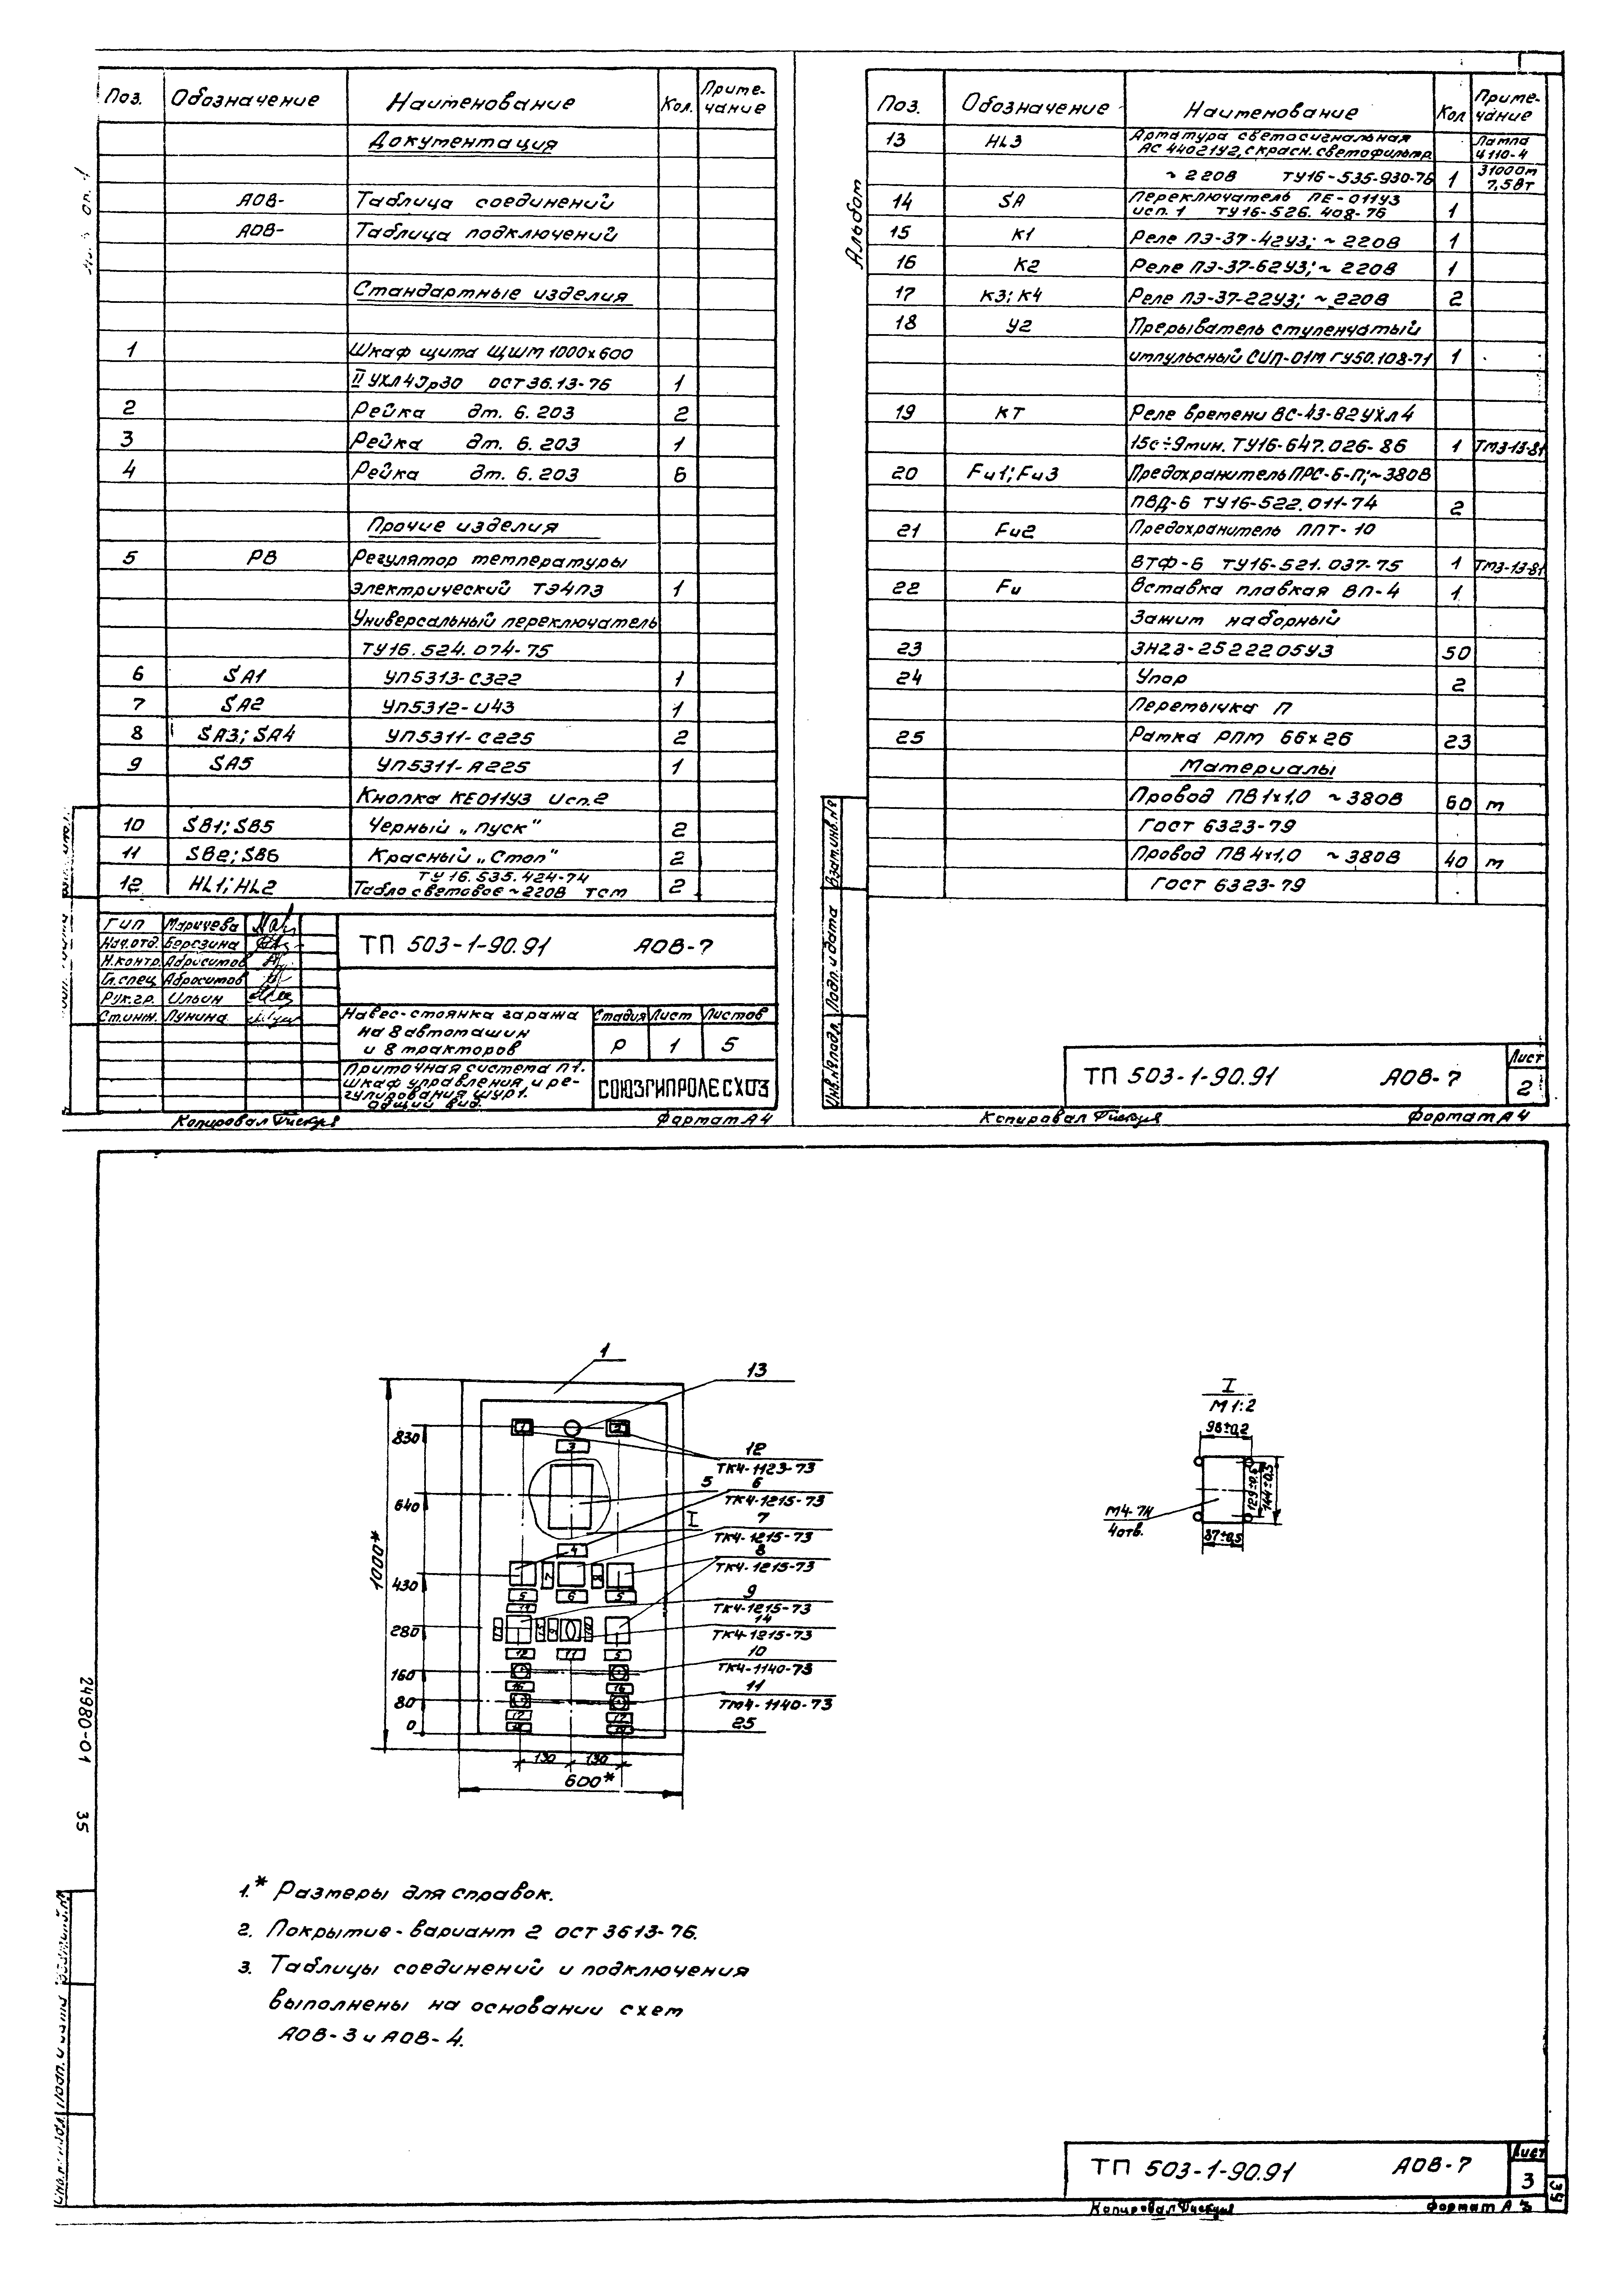 Поз. Обозначение Наименование Кол. Приме-чание
Документация
АОВ- Таблица соединений
АОВ- Таблица подключений
Стандартные изделия
1 Шкаф щита ЩШМ 1000х600
II УХЛ4Jр30 ОСТ 36.13-76 1
2 Рейка дт. 6.203 2
3 Рейка дт. 6.203 1
4 Рейка дт. 6.203 6
Прочие изделия
5 РВ Регулятор температуры
электрический ТЭ4ПЗ 1
Универсальный переключатель
ТУ16.524.074-75
6 SA1 УП5313-С322 1
7 SA2 УП5312-И43 1
8 SA3; SA4 УП5311-С225 2
9 SA5 УП5311-А225 1
Кнопка КЕ011У3 Исп.2
10 SB1; SB5 Черный „пуск" 2
11 SB2; SB6 Красный „Стоп" 2
ТУ 16.535.424-74
12 HL1; HL2 Табло световое ~220В ТСМ 2
ГИП Маричева
Нач.отд. Березина
Н.контр. Абросимов
Гл.спец Абросимов
Рук.гр. Ильин
Ст.инж. Лунина
ТП 503-1-90.91 АОВ-7
Навес-стоянка гаража
на 8 автомашин
и 8 тракторов
Стадия Лист Листов
Р 1 5
Приточная система П1.
шкаф управления и ре-
гулирования ШУР1.
Общий вид.
СОЮЗГИПРОЛЕСХОЗ
Копировал Формат А4
Альбом
Поз. Обозначение Наименование Кол Приме-чание
13 HL3 Арматура светосигнальная Лампа
АС 44021У2, с красн. светофильтр Ц110-4
~220В ТУ16-535-930-76 1 31000т
7,5Вт
14 SA Переключатель ПЕ-011У3
исп. 1 ТУ16-526.408-76 1
15 К1 Реле ПЭ-37-42У3; ~220В 1
16 К2 Реле ПЭ-37-62У3; ~220В 1
17 К3; К4 Реле ПЭ-37-22У3; ~220В 2
18 У2 Прерыватель ступенчатый
импульсный СИП-01М ГУ50.108-71 1
19 КТ Реле времени ВС-43-82УХЛ4
15с÷9мин. ТУ16-647.026-86 1 ТМ3-13-81
20 Fu1; Fu3 Предохранитель ПРС-6-П; ~380В
ПВД-6 ТУ16-522.011-74 2
21 Fu2 Предохранитель ППТ-10
ВТФ-6 ТУ16-521.037-75 1 ТМ3-13-81
22 Fu Вставка плавкая ВП-4 1
Зажим наборный
23 ЗН23-2522205У3 50
24 Упор 2
Перемычка П
25 Рамка РПМ 66х26 23
Материалы
Провод ПВ 1х1,0 ~380В 60 м
Гост 6323-79
Провод ПВ 4х1,0 ~380В 40 м
Гост 6323-79
Взам.инв.№
Подп. и дата
Инв.№подл.
ТП 503-1-90.91 АОВ-7
Лист
2
Копировал Формат А4
1
13
12
ТК4-1123-73
5 6
ТК4-1215-73
7
ТК4-1215-73
8
ТК4-1215-73
9
ТК4-1215-73
14
ТК4-1215-73
10
ТК4-1140-73
11
ТМ4-1140-73
25
I
1000*
830
640
430
280
160
80
0
130 130
600*
I
М 1:2
96±0,2
129±0,6
144±0,5
М4-7Н
4отв.
87±0,5
1.* Размеры для справок.
2. Покрытие-вариант 2 ОСТ 3613-76.
3. Таблицы соединений и подключения
выполнены на основании схем
АОВ-3 и АОВ-4.
24980-01 35
ТП 503-1-90.91 АОВ-7
Лист
3
39
Копировал Формат А3